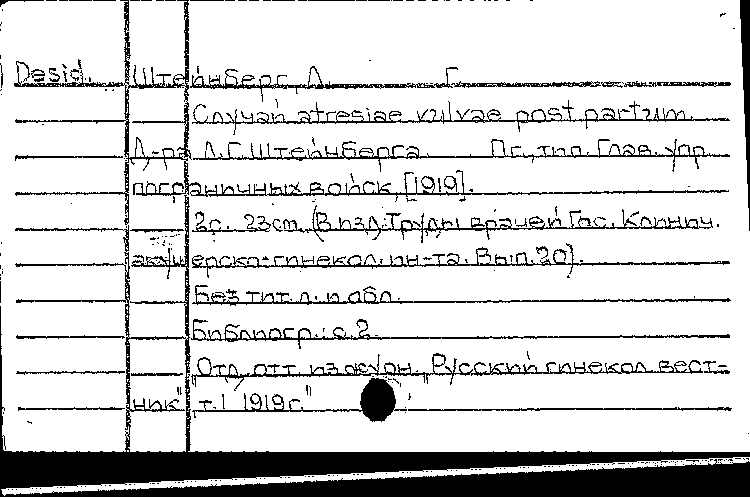 Desid. Штейнберг, Л. Г.
Случай atresiae vulvae post partum.
Д-ра Л.Г. Штейнберга. Пг., тип. Глав. упр.
пограничных войск, [1919].
2с. 23см. (В изд.: Труды врачей Гос. Клинич.
акушерско-гинекол. ин-та. Вып. 20).
Без тит. л. и обл.
Библиогр.: с. 2.
"Отд. отт. из журн. "Русский гинекол. вест-
ник" т. 1 1919 г."